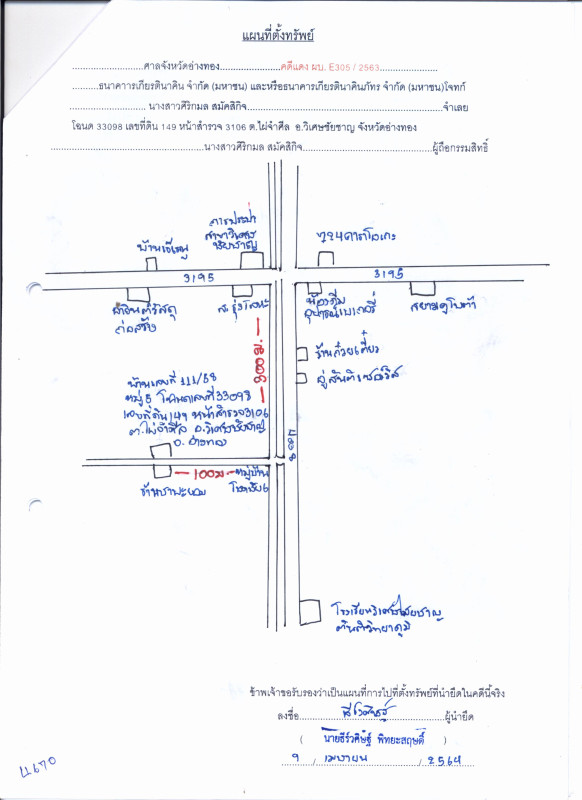 แผนที่ตั้งทรัพย์
ศาลจังหวัดอ่างทอง คดีแดง ผบ. E305 / 2563
ธนาคารเกียรตินาคิน จำกัด (มหาชน) และหรือธนาคารเกียรตินาคินภัทร จำกัด (มหาชน)โจทก์
นางสาวศิริกมล สมัคสิกิจ จำเลย
โฉนด 33098 เลขที่ดิน 149 หน้าสำรวจ 3106 ต.ไผ่จำศีล อ.วิเศษชัยชาญ จังหวัดอ่างทอง
นางสาวศิริกมล สมัคสิกิจ ผู้ถือกรรมสิทธิ์
การประปา
สาขาวิเศษ
ชัยชาญ
3195
3195
ก่อสร้าง
800 ม.
ร้านก๋วยเตี๋ยว
อู่สันติเซอร์วิส
บ้านเลขที่ 111/58
หมู่ 5 โฉนดเลขที่ 33098
เลขที่ดิน 149 หน้าสำรวจ 3106
ต.ไผ่จำศีล อ.วิเศษชัยชาญ
จ.อ่างทอง
100 ม.
หมู่บ้าน
โรงเรียนวิเศษไชยชาญ
ตันติวิทยาภูมิ
ข้าพเจ้าขอรับรองว่าเป็นแผนที่การไปที่ตั้งทรัพย์ที่นำยึดในคดีนี้จริง
ลงชื่อ ผู้นำยึด
( นายธีร์วศิษฐ์ พิทยะสฤษดิ์ )
9 / เมษายน / 2564